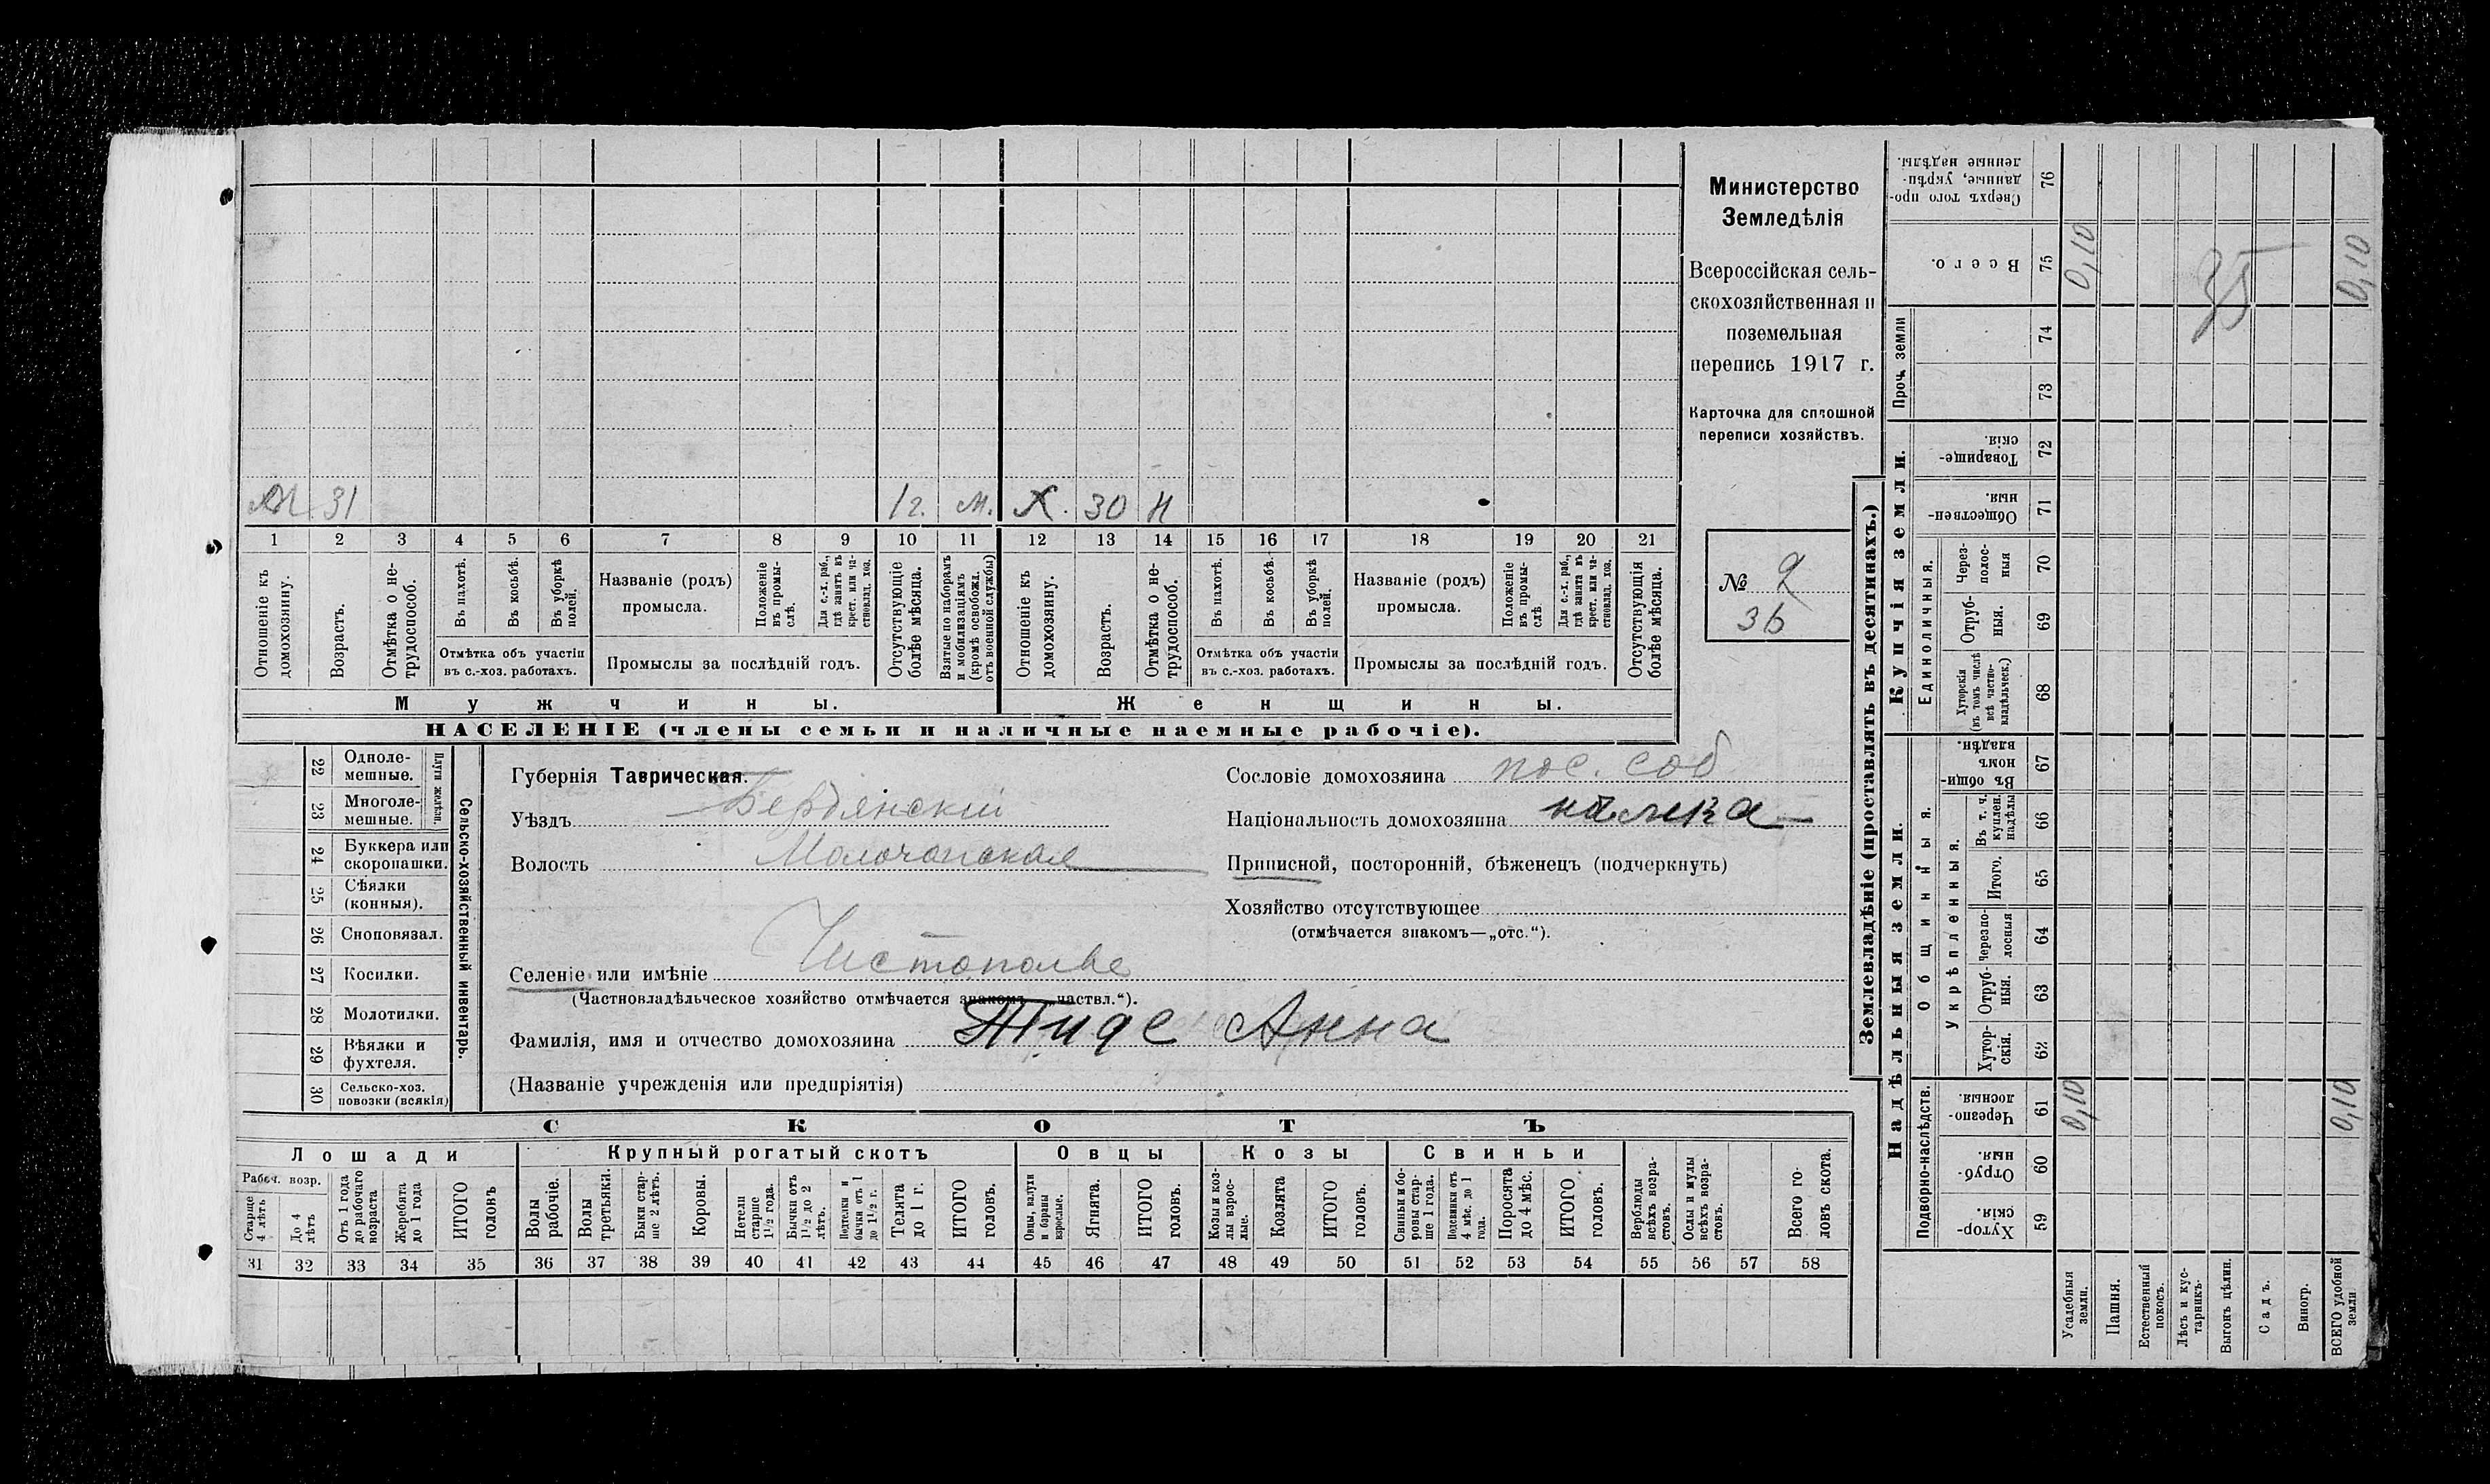 М 31 1 г. м. Х. 30 н
1 2 3 4 5 6 7 8 9 10 11 12 13 14 15 16 17 18 19 20 21
Отношеніе къ домохозяину.
Возрастъ.
Отмѣтка о не-трудоспособ.
Въ пахотѣ.
Въ косьбѣ.
Въ уборкѣ полей.
Отмѣтка объ участіи
въ с.-хоз. работахъ.
Названіе (родъ)
промысла.
Положеніе въ промы-слѣ.
Для с.-х. раб., гдѣ занятъ въ крест. или ча-стновлад. хоз.
Промыслы за послѣдній годъ.
Отсутствующіе болѣе мѣсяца.
Взятые по наборамъ и мобилизаціямъ (кромѣ освобожд. отъ военной службы)
Отношеніе къ домохозяину.
Возрастъ.
Отмѣтка о не-трудоспособ.
Въ пахотѣ.
Въ косьбѣ.
Въ уборкѣ полей.
Отмѣтка объ участіи
въ с.-хоз. работахъ.
Названіе (родъ)
промысла.
Положеніе въ промы-слѣ
Для с.-х. раб., гдѣ занята въ крест. или ча-стновлад. хоз.
Промыслы за послѣдній годъ.
Отсутствующія болѣе мѣсяца.
Мужчины.
Женщины.
НАСЕЛЕНІЕ (члены семьи и наличные наемные рабочіе).
Министерство
Земледѣлія
Всероссійская сель-
скохозяйственная и
поземельная
перепись 1917 г.
Карточка для сплошной
переписи хозяйствъ.
№ 2
36
22 Одноле-мешные.
23 Многоле-мешные.
Плуги желѣзн.
24 Буккера или скоропашки.
25 Сѣялки (конныя).
26 Сноповязал.
27 Косилки.
28 Молотилки.
29 Вѣялки и фухтеля.
30 Сельско-хоз. повозки (всякія)
Сельско-хозяйственный инвентарь.
Губернія Таврическая.
Уѣздъ Бердянскій
Волость Молочанская
Селеніе или имѣніе Чистополье
(Частновладѣльческое хозяйство отмѣчается знакомъ—„частвл.“).
Фамилія, имя и отчество домохозяина Тиде Анна
(Названіе учрежденія или предпріятія)
Сословіе домохозяина пос. соб
Національность домохозяина немка
Приписной, посторонній, бѣженецъ (подчеркнуть)
Хозяйство отсутствующее
(отмѣчается знакомъ—„отс.“).
СКОТЪ
Лошади
Крупный рогатый скотъ
Овцы
Козы
Свиньи
Рабоч. возр.
Старше 4 лѣтъ
До 4 лѣтъ
Отъ 1 года до рабочаго возраста
Жеребята до 1 года
ИТОГО головъ
Волы рабочіе.
Волы третьяки.
Быки стар-ше 2 лѣтъ.
Коровы.
Нетели старше 1½ года.
Бычки отъ 1½ до 2 лѣтъ.
Подтелки и бычки отъ 1 до 1½ г.
Телята до 1 г.
ИТОГО головъ.
Овцы, валухи и бараны взрослые.
Ягнята.
ИТОГО головъ.
Козы и коз-лы взрос-лые.
Козлята
ИТОГО головъ.
Свиньи и бо-ровы стар-ше 1 года.
Подсвинки отъ 4 мѣс. до 1 года.
Поросята до 4 мѣс.
ИТОГО головъ.
Верблюды всѣхъ возра-стовъ.
Ослы и мулы всѣхъ возра-стовъ.
Всего го-ловъ скота.
31 32 33 34 35 36 37 38 39 40 41 42 43 44 45 46 47 48 49 50 51 52 53 54 55 56 57 58
Землевладѣніе (проставлять въ десятинахъ.)
Надѣльныя земли.
Купчія земли.
Проч. земли
Подворно-наслѣдств.
Общинныя.
Укрѣпленныя.
Единоличныя.
Сверхъ того про-данные, укрѣп-ленные надѣлы. 76
Всего. 75 0,10 35 0,10
74
73
Товарище-скія. 72
Обществен-ныя. 71
Через-полос-ныя 70
Отруб-ныя. 69
Хуторскія (въ томъ числѣ всѣ частно-владѣльческ.) 68
Въ общи-номъ владѣн. 67
Въ т. ч. куплен. надѣлы 66
Итого. 65
Черезпо-лосныя 64
Отруб-ныя. 63
Хутор-скія. 62
Черезпо-лосныя. 61 0,10 0,10
Отруб-ныя. 60
Хутор-скія. 59
Усадебныя земли.
Пашня.
Естественный покосъ.
Лѣсъ и кус-тарникъ.
Выгонъ цѣлин.
Садъ.
Виногр.
ВСЕГО удобной земли